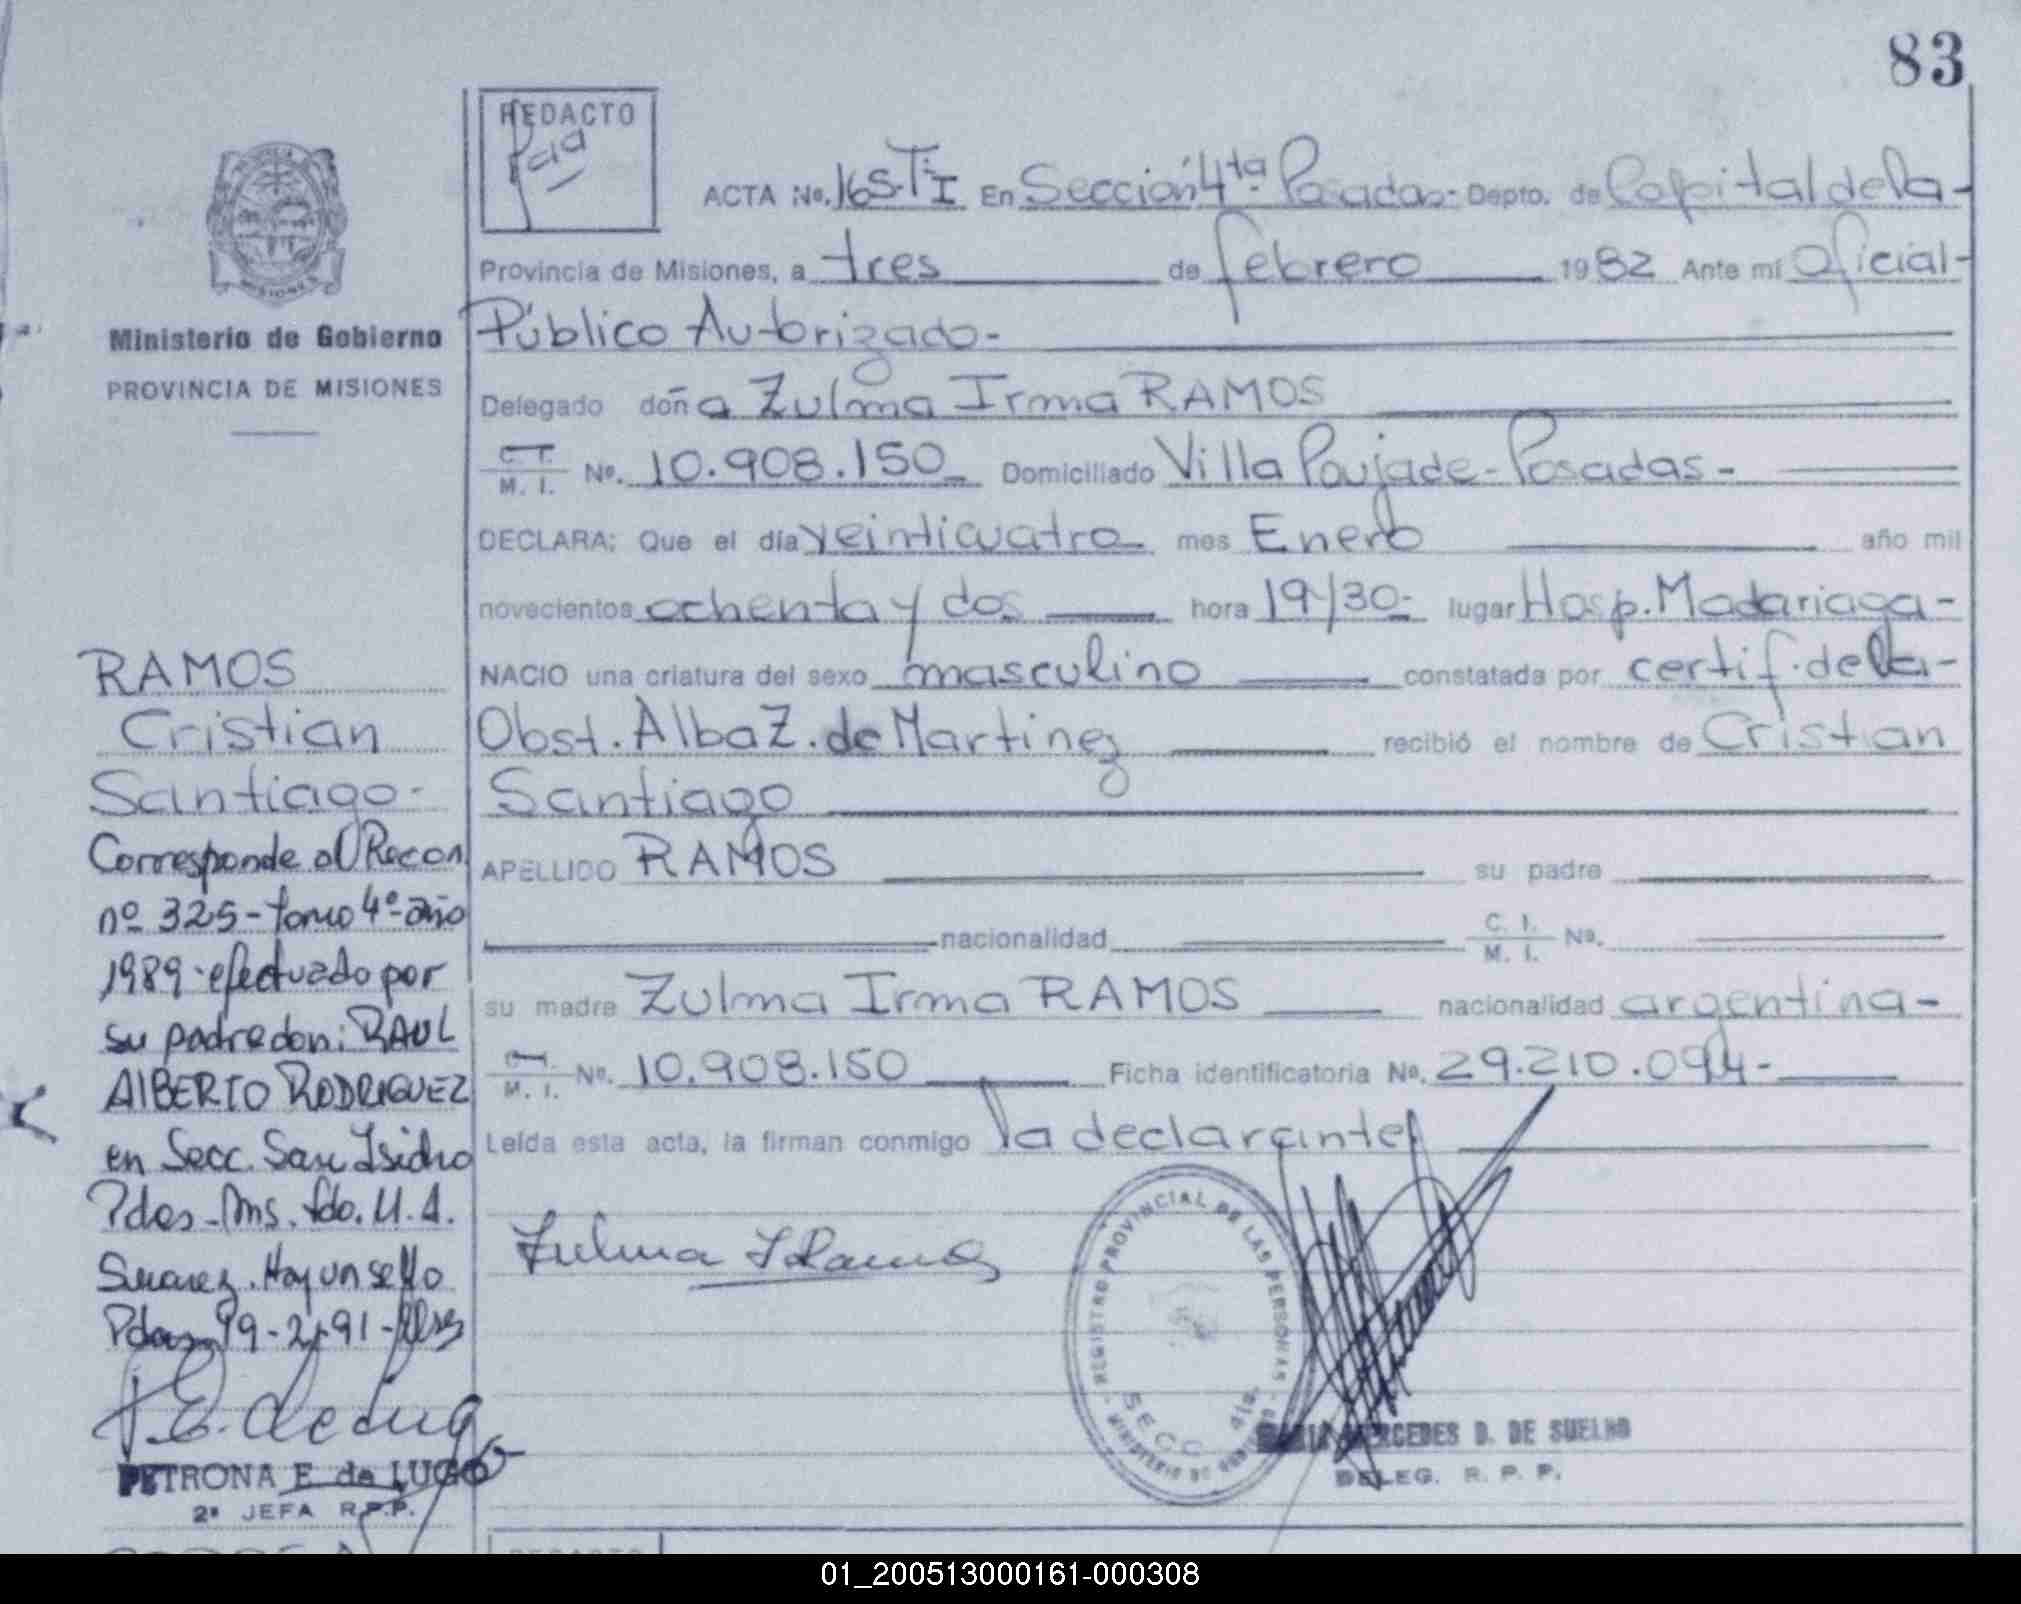 83
REDACTO
ACTA No. 165-T:I En Sección 4ta Posadas- Depto. de Capital de la-
Provincia de Misiones, a tres de febrero 1982 Ante mí Oficial-
Público Autorizado-
Delegado doña Zulma Irma RAMOS
C. I.
M. I. No. 10.908.150 Domiciliado Villa Poujade-Posadas-
DECLARA: Que el día veinticuatro mes Enero año mil
novecientos ochenta y dos hora 19/30- lugar Hosp. Madariaga-
NACIO una criatura del sexo masculino constatada por certif. de la-
Obst. Alba Z. de Martinez recibió el nombre de Cristian
Santiago
APELLIDO RAMOS su padre
nacionalidad C. I.
M. I. No.
su madre Zulma Irma RAMOS nacionalidad argentina-
C. I.
M. I. No. 10.908.150 Ficha identificatoria No. 29.210.094-
Leída esta acta, la firman conmigo la declarante
Zulma I Ramos
REGISTRO PROVINCIAL DE LAS PERSONAS
MINISTERIO DE
SECC
MERCEDES D. DE SUELDO
DELEG. R. P. P.
MISIONES
Ministerio de Gobierno
PROVINCIA DE MISIONES
RAMOS
Cristian
Santiago-
Corresponde al Recon
nº 325-tomo 4º-año
1989-efectuado por
su padre don: RAUL
ALBERTO RODRIGUEZ
en Secc. San Isidro
Pdas-Mns. fdo. M. A.
Suarez. Hay un sello
Pdas 19-2-91-
P. E. de Lugo
PETRONA E. de LUGO
2ª JEFA R.P.P.
REDACTO
01_200513000161-000308